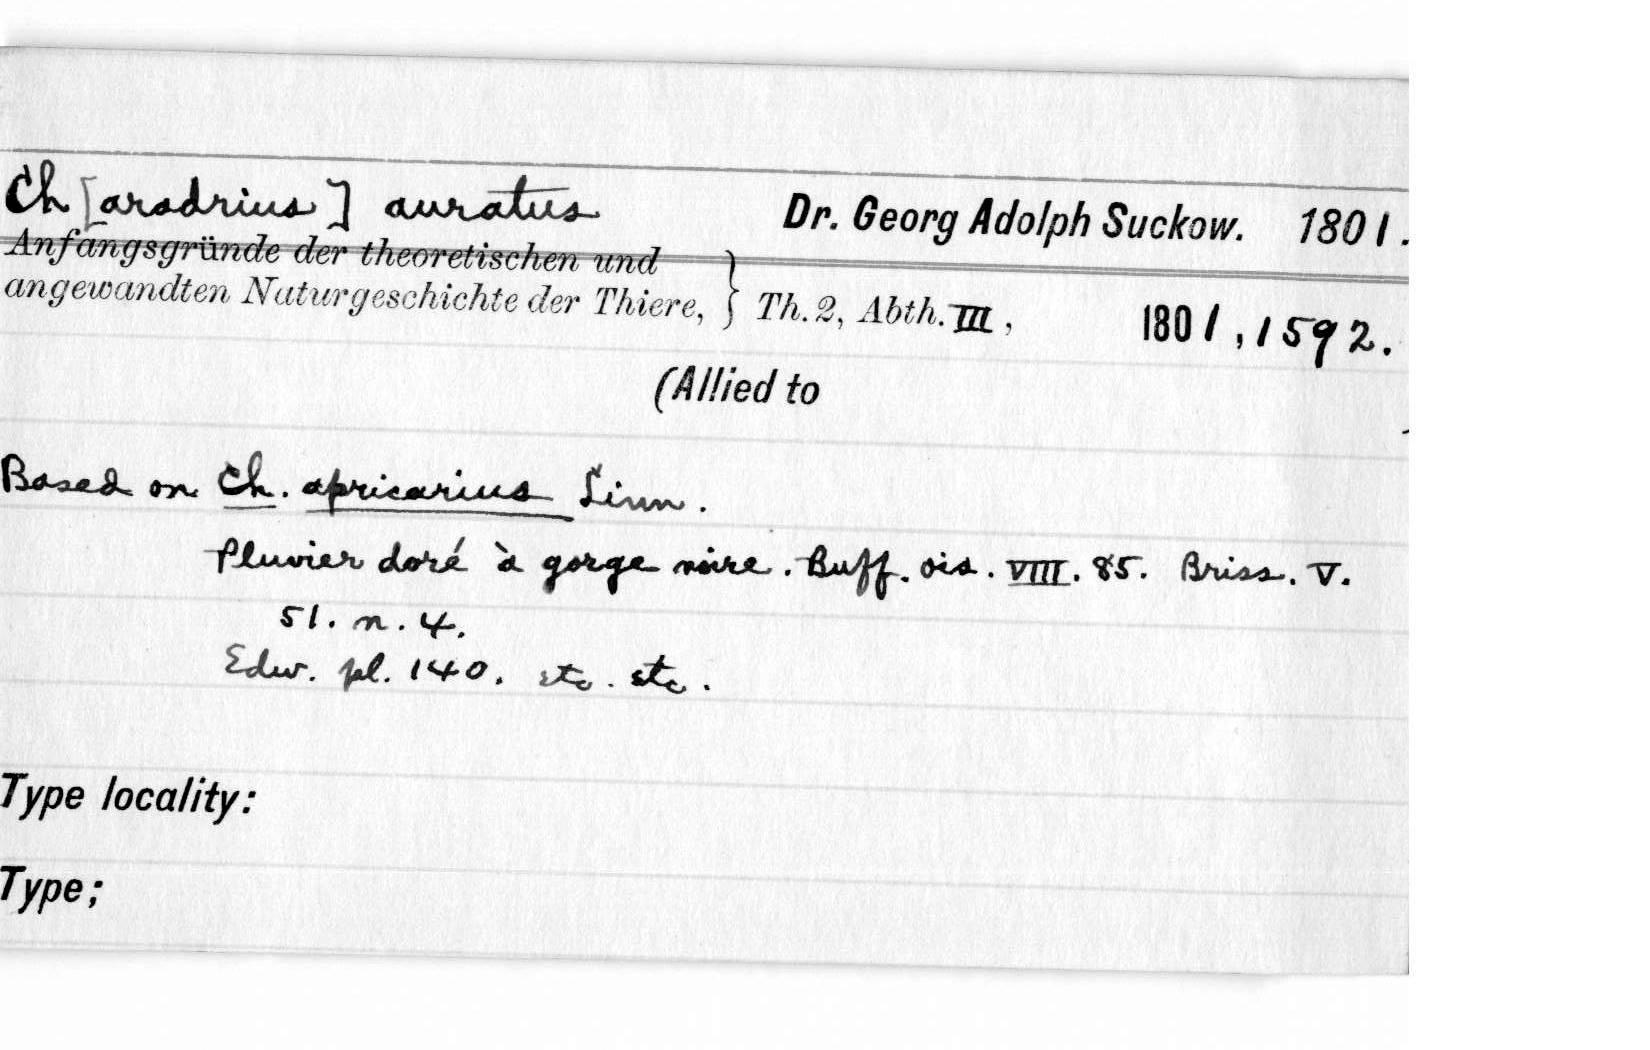 Ch[aradrius] auratus Dr. Georg Adolph Suckow. 1801.
Anfangsgründe der theoretischen und
angewandten Naturgeschichte der Thiere, } Th. 2, Abth. III, 1801, 1592.
(Allied to
Based on Ch. apricarius Linn.
Pluvier doré à gorge noire. Buff. ois. VIII. 85. Briss. V.
51. n. 4.
Edw. pl. 140. etc. etc.
Type locality:
Type;